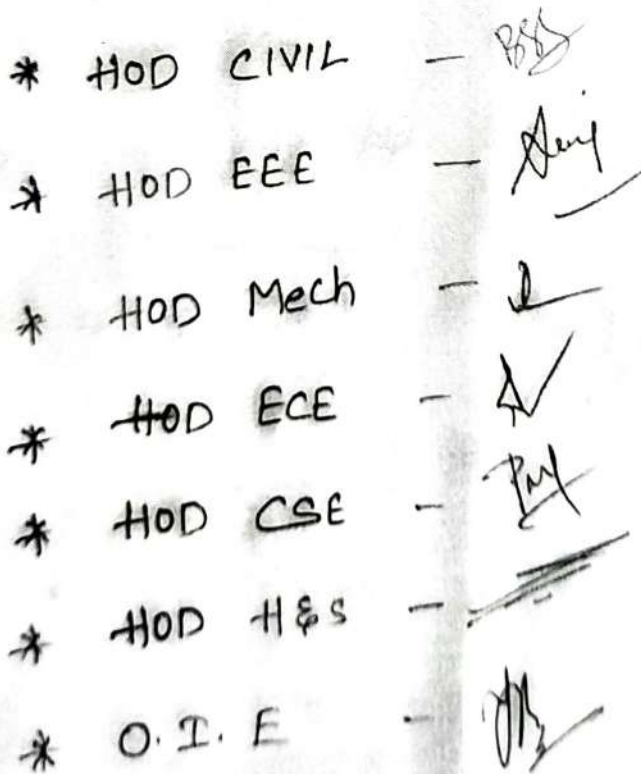 * HOD CIVIL -
* HOD EEE -
* HOD Mech -
* HOD ECE -
* HOD CSE -
* HOD H&S -
* O.I.E -